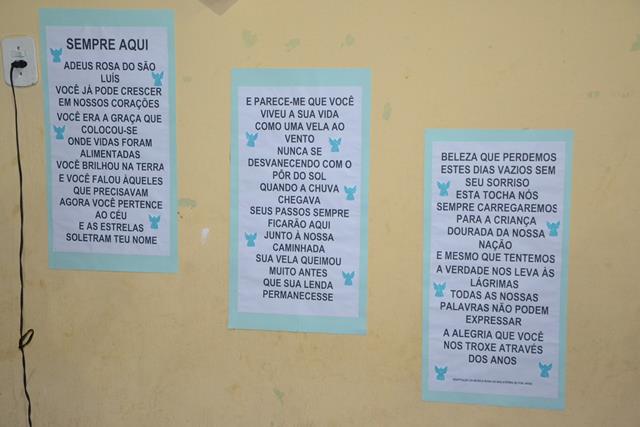 SEMPRE AQUI
ADEUS ROSA DO SÃO
LUÍS
VOCÊ JÁ PODE CRESCER
EM NOSSOS CORAÇÕES
VOCÊ ERA A GRAÇA QUE
COLOCOU-SE
ONDE VIDAS FORAM
ALIMENTADAS
VOCÊ BRILHOU NA TERRA
E VOCÊ FALOU ÀQUELES
QUE PRECISAVAM
AGORA VOCÊ PERTENCE
AO CÉU
E AS ESTRELAS
SOLETRAM TEU NOME
E PARECE-ME QUE VOCÊ
VIVEU A SUA VIDA
COMO UMA VELA AO
VENTO
NUNCA SE
DESVANECENDO COM O
PÔR DO SOL
QUANDO A CHUVA
CHEGAVA
SEUS PASSOS SEMPRE
FICARÃO AQUI
JUNTO À NOSSA
CAMINHADA
SUA VELA QUEIMOU
MUITO ANTES
QUE SUA LENDA
PERMANECESSE
BELEZA QUE PERDEMOS
ESTES DIAS VAZIOS SEM
SEU SORRISO
ESTA TOCHA NÓS
SEMPRE CARREGAREMOS
PARA A CRIANÇA
DOURADA DA NOSSA
NAÇÃO
E MESMO QUE TENTEMOS
A VERDADE NOS LEVA ÀS
LÁGRIMAS
TODAS AS NOSSAS
PALAVRAS NÃO PODEM
EXPRESSAR
A ALEGRIA QUE VOCÊ
NOS TROXE ATRAVÉS
DOS ANOS